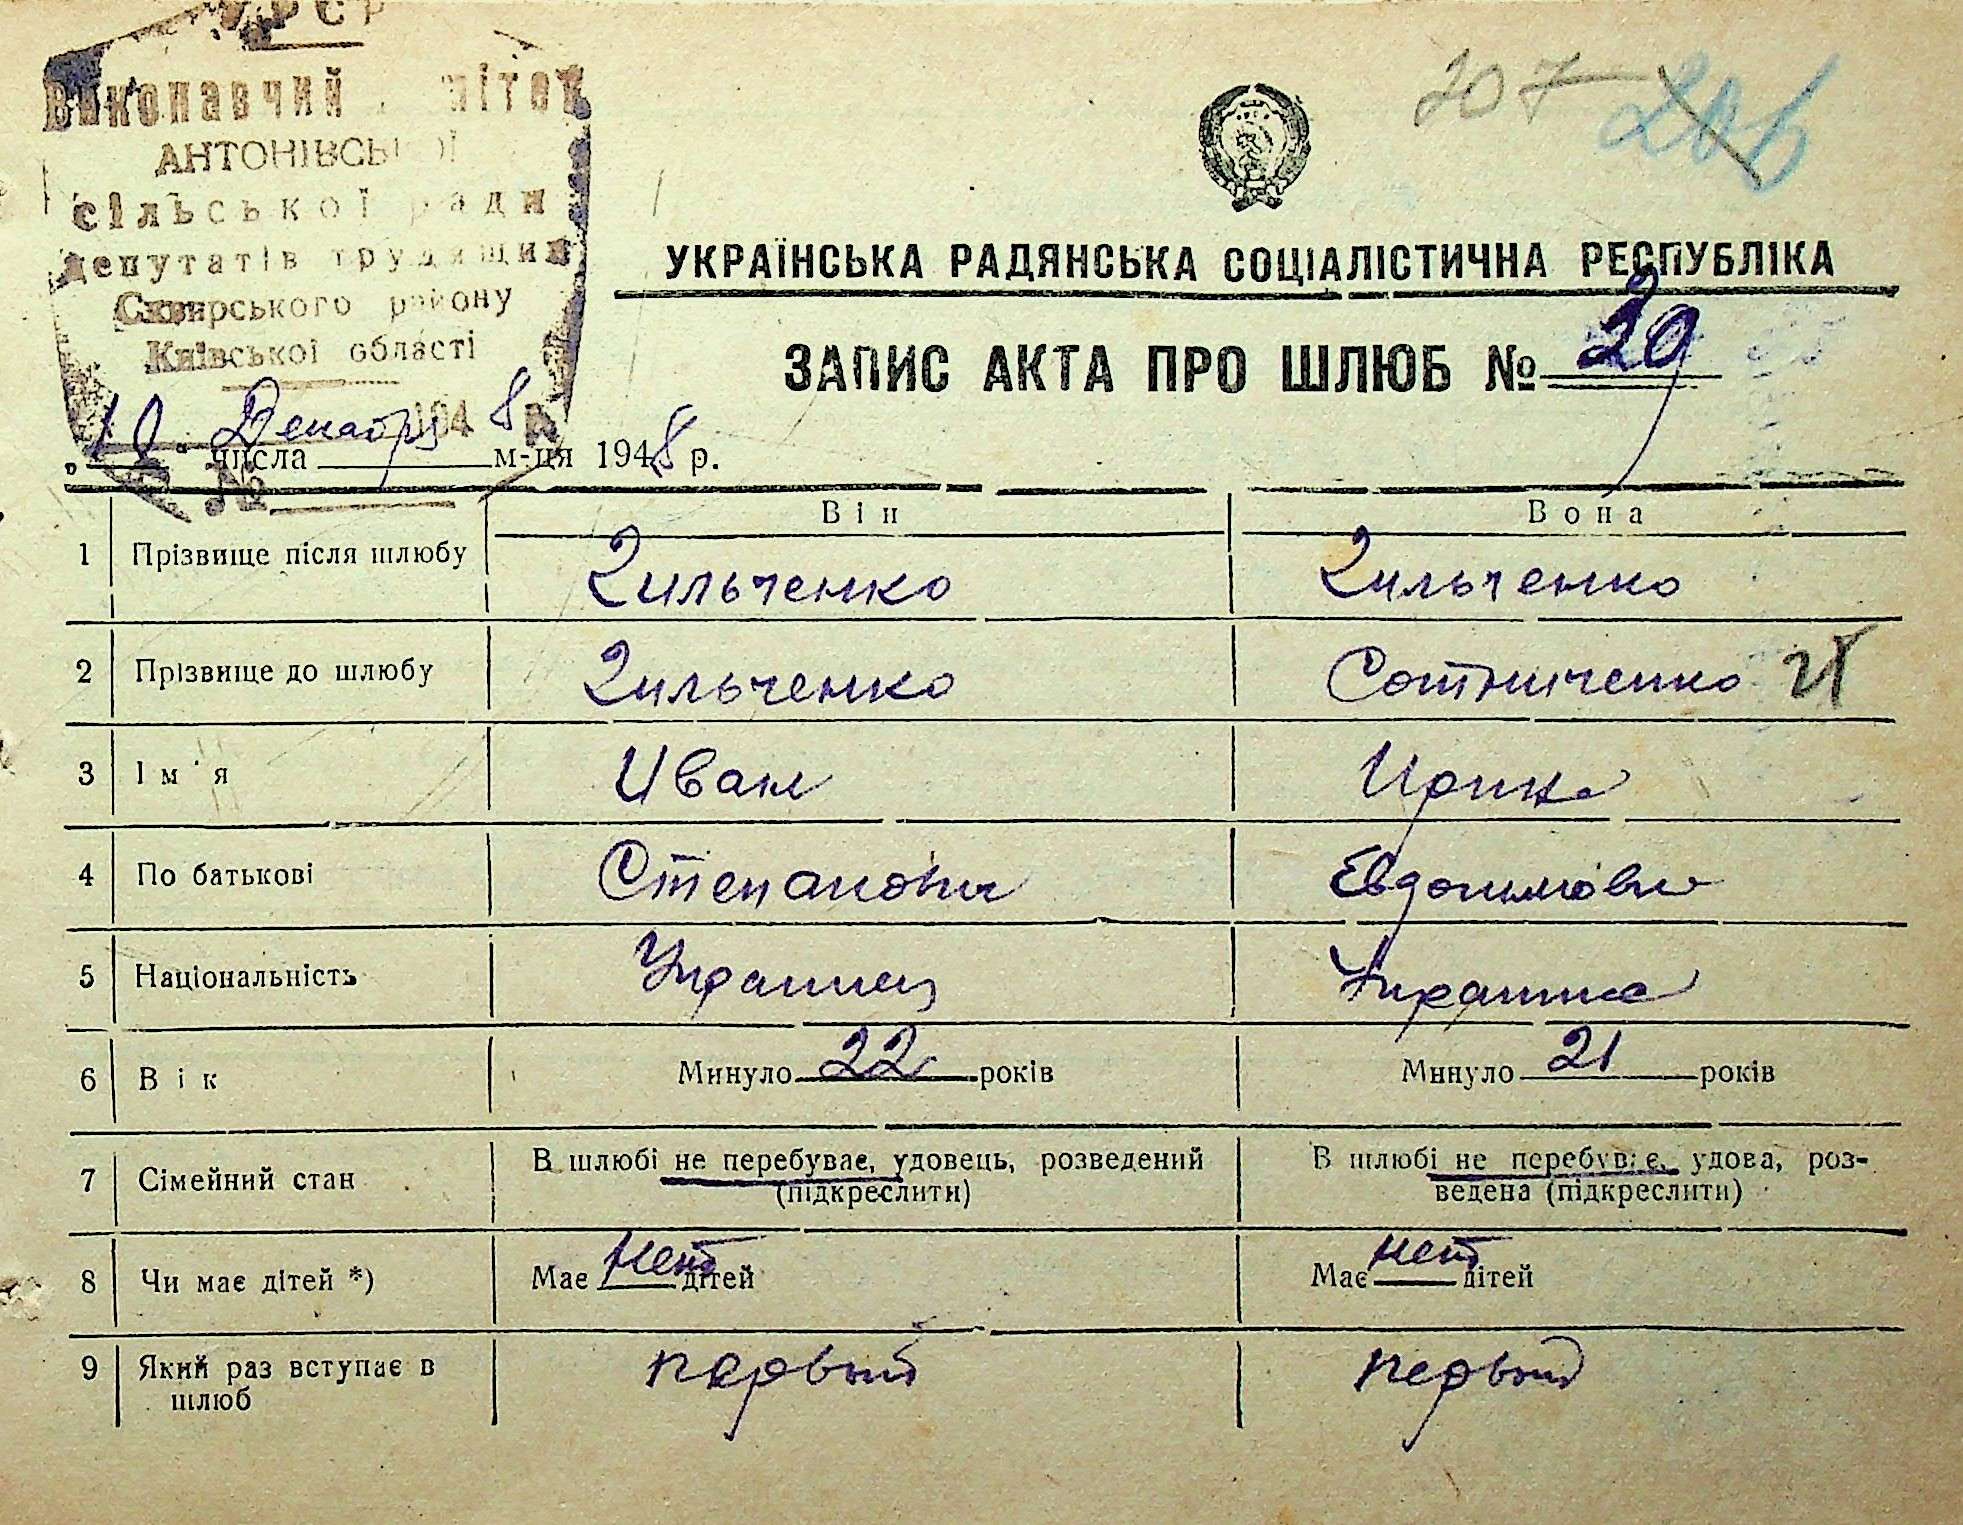 УРСР
Виконавчий комітет
АНТОНІВСЬКОЇ
сільської ради
депутатів трудящих
Сквирського району
Київської області
194 8 р.
№
207 206
УКРАЇНСЬКА РАДЯНСЬКА СОЦІАЛІСТИЧНА РЕСПУБЛІКА
ЗАПИС АКТА ПРО ШЛЮБ №
„ “ числа Декабря м-ця 1948 р.
Він Вона
1 Прізвище після шлюбу Зильченко Зильченко
2 Прізвище до шлюбу Зильченко Сотниченко
3 Ім'я Иван Ирина
4 По батькові Степанович Евдокимовна
5 Національність Украинец Украинка
6 Вік Минуло 22 років Минуло 21 років
7 Сімейний стан В шлюбі не перебуває, удовець, розведений (підкреслити) В шлюбі не перебуває, удова, роз-
ведена (підкреслити)
8 Чи має дітей *) Має нет дітей Має нет дітей
9 Який раз вступає в шлюб первый первый